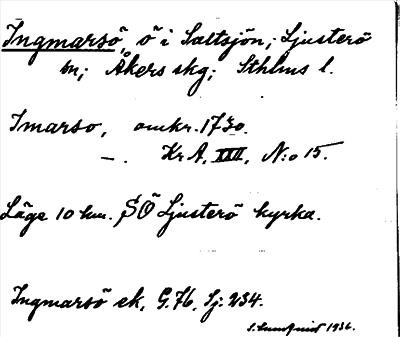 Ingmarsö, ö i Saltsjön; Ljusterö
sn; Åkers skg; Sthlms l.
Imarso, omkr. 1730.
— . Kr A, XIII, N:o 15.
Läge 10 km. SÖ Ljusterö kyrka.
Ingmarsö ek. G. 76, Sj: 234.
S. Lundquist 1936.